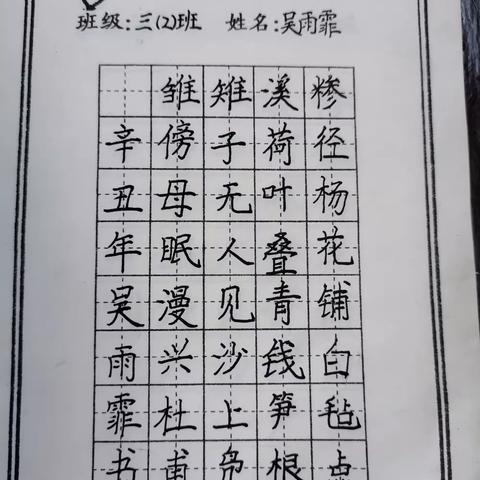 班级:三(2)班 姓名:吴雨霏
糁径杨花铺白毡点
溪荷叶叠青钱笋根
雉子无人见沙上凫
雏傍母眠漫兴杜甫
辛丑年吴雨霏书